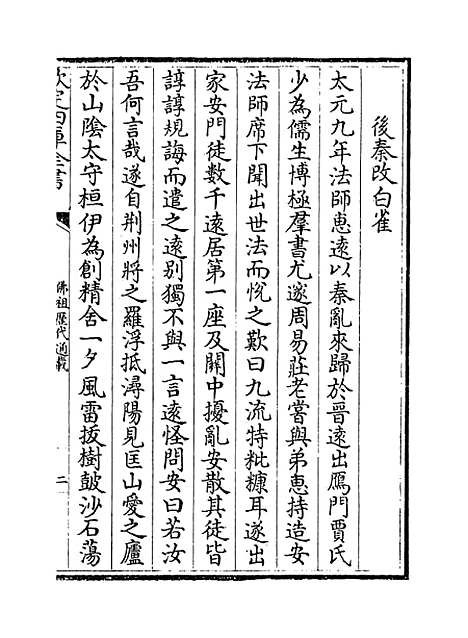 後秦改白雀
太元九年法師惠遠以秦亂來歸於晉遠出鴈門賈氏
少為儒生博極羣書尤邃周易莊老嘗與弟惠持造安
法師席下聞出世法而悅之歎曰九流特粃糠耳遂出
家安門徒數千遠居第一座及關中擾亂安散其徒皆
諄諄規誨而遣之遠别獨不與一言遠怪問安曰若汝
吾何言哉遂自荆州將之羅浮抵潯陽見匡山愛之廬
於山隂太守桓伊為創精舍一夕風雷拔樹皷沙石蕩
欽定四庫全書
佛祖歷代通載
二